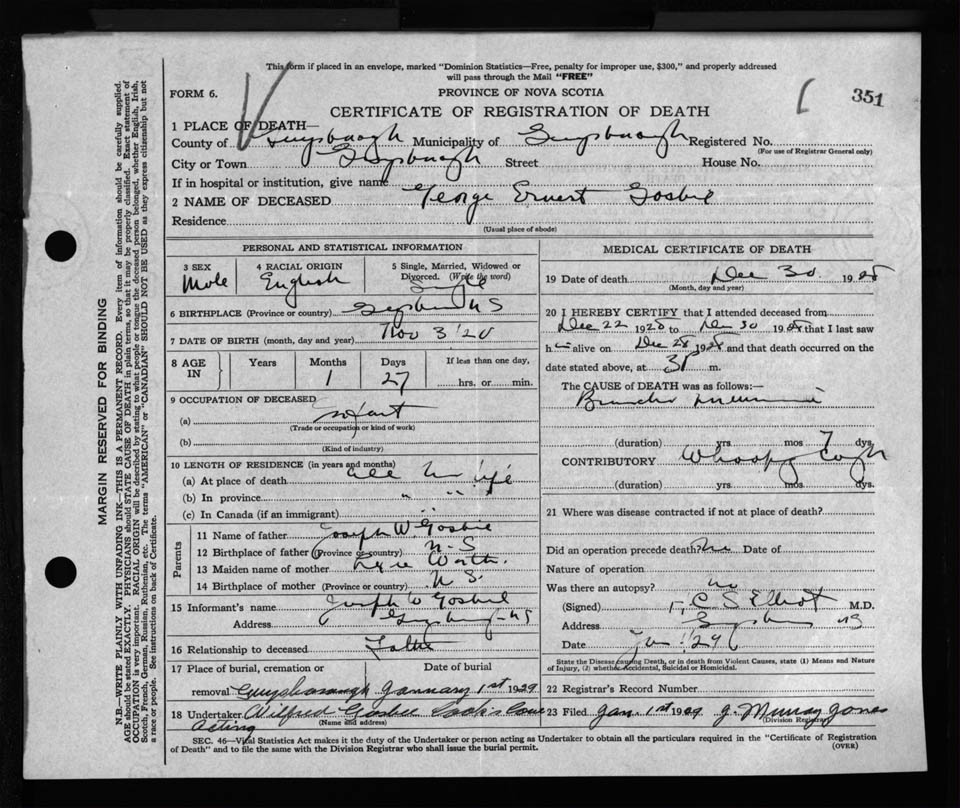 This form if placed in an envelope, marked "Dominion Statistics—Free, penalty for improper use, $300," and properly addressed
will pass through the Mail "FREE"
FORM 6.
PROVINCE OF NOVA SCOTIA
351
CERTIFICATE OF REGISTRATION OF DEATH
1 PLACE OF DEATH—
County of Guysborough Municipality of Guysborough Registered No.
(For use of Registrar General only)
City or Town Guysborough Street House No.
If in hospital or institution, give name
2 NAME OF DECEASED George Ernest Gosbie
Residence
(Usual place of abode)
PERSONAL AND STATISTICAL INFORMATION
3 SEX 4 RACIAL ORIGIN 5 Single, Married, Widowed or
Divorced. (Write the word)
Male English Single
6 BIRTHPLACE (Province or country) NS
7 DATE OF BIRTH (month, day and year) Nov 3
8 AGE IN Years Months Days If less than one day,
1 27 hrs. or min.
9 OCCUPATION OF DECEASED
(a) infant
(Trade or occupation or kind of work)
(b)
(Kind of industry)
10 LENGTH OF RESIDENCE (in years and months)
(a) At place of death life
(b) In province " " "
(c) In Canada (if an immigrant) "
Parents
11 Name of father Joseph W. Gosbie
12 Birthplace of father (Province or country) N-S
13 Maiden name of mother
14 Birthplace of mother (Province or country) N S.
15 Informant's name Joseph W Gosbie
Address NS
16 Relationship to deceased Father
17 Place of burial, cremation or Date of burial
removal Guysborough January 1st 1929
18 Undertaker Wilfred Gosbie Cook's Cove
(Name and address)
Acting
MEDICAL CERTIFICATE OF DEATH
19 Date of death Dec 30 1928
(Month, day and year)
20 I HEREBY CERTIFY that I attended deceased from
Dec 22 1928 to Dec 30 1928 that I last saw
h alive on Dec 28 1928 and that death occurred on the
date stated above, at m.
The CAUSE of DEATH was as follows:—
Broncho pneumonia
(duration) yrs mos 7 dys.
CONTRIBUTORY Whooping Cough
(duration) yrs. mos. dys.
21 Where was disease contracted if not at place of death?
Did an operation precede death? no Date of
Nature of operation
Was there an autopsy? no
(Signed) M.D.
Address NS
Date Jan 1/29
State the Disease causing Death, or in death from Violent Causes, state (1) Means and Nature
of Injury, (2) whether Accidental, Suicidal or Homicidal.
22 Registrar's Record Number
23 Filed Jan. 1st 1929 J. Murray Jones
(Division Registrar)
SEC. 46—Vital Statistics Act makes it the duty of the Undertaker or person acting as Undertaker to obtain all the particulars required in the "Certificate of Registration
of Death" and to file the same with the Division Registrar who shall issue the burial permit.
(OVER)
MARGIN RESERVED FOR BINDING
N.B.—WRITE PLAINLY WITH UNFADING INK—THIS IS A PERMANENT RECORD. Every item of information should be carefully supplied.
AGE should be stated EXACTLY. PHYSICIANS should STATE CAUSE OF DEATH in plain terms, so that it may be properly classified. Exact statement of
OCCUPATION is very important. RACIAL ORIGIN will be described by stating to what people or tongue the deceased person belonged, whether English, Irish,
Scotch, French, German, Russian, Ruthenian, etc. The terms "AMERICAN" or "CANADIAN" SHOULD NOT BE USED as they express citizenship but not
a race or people. See instructions on back of Certificate.